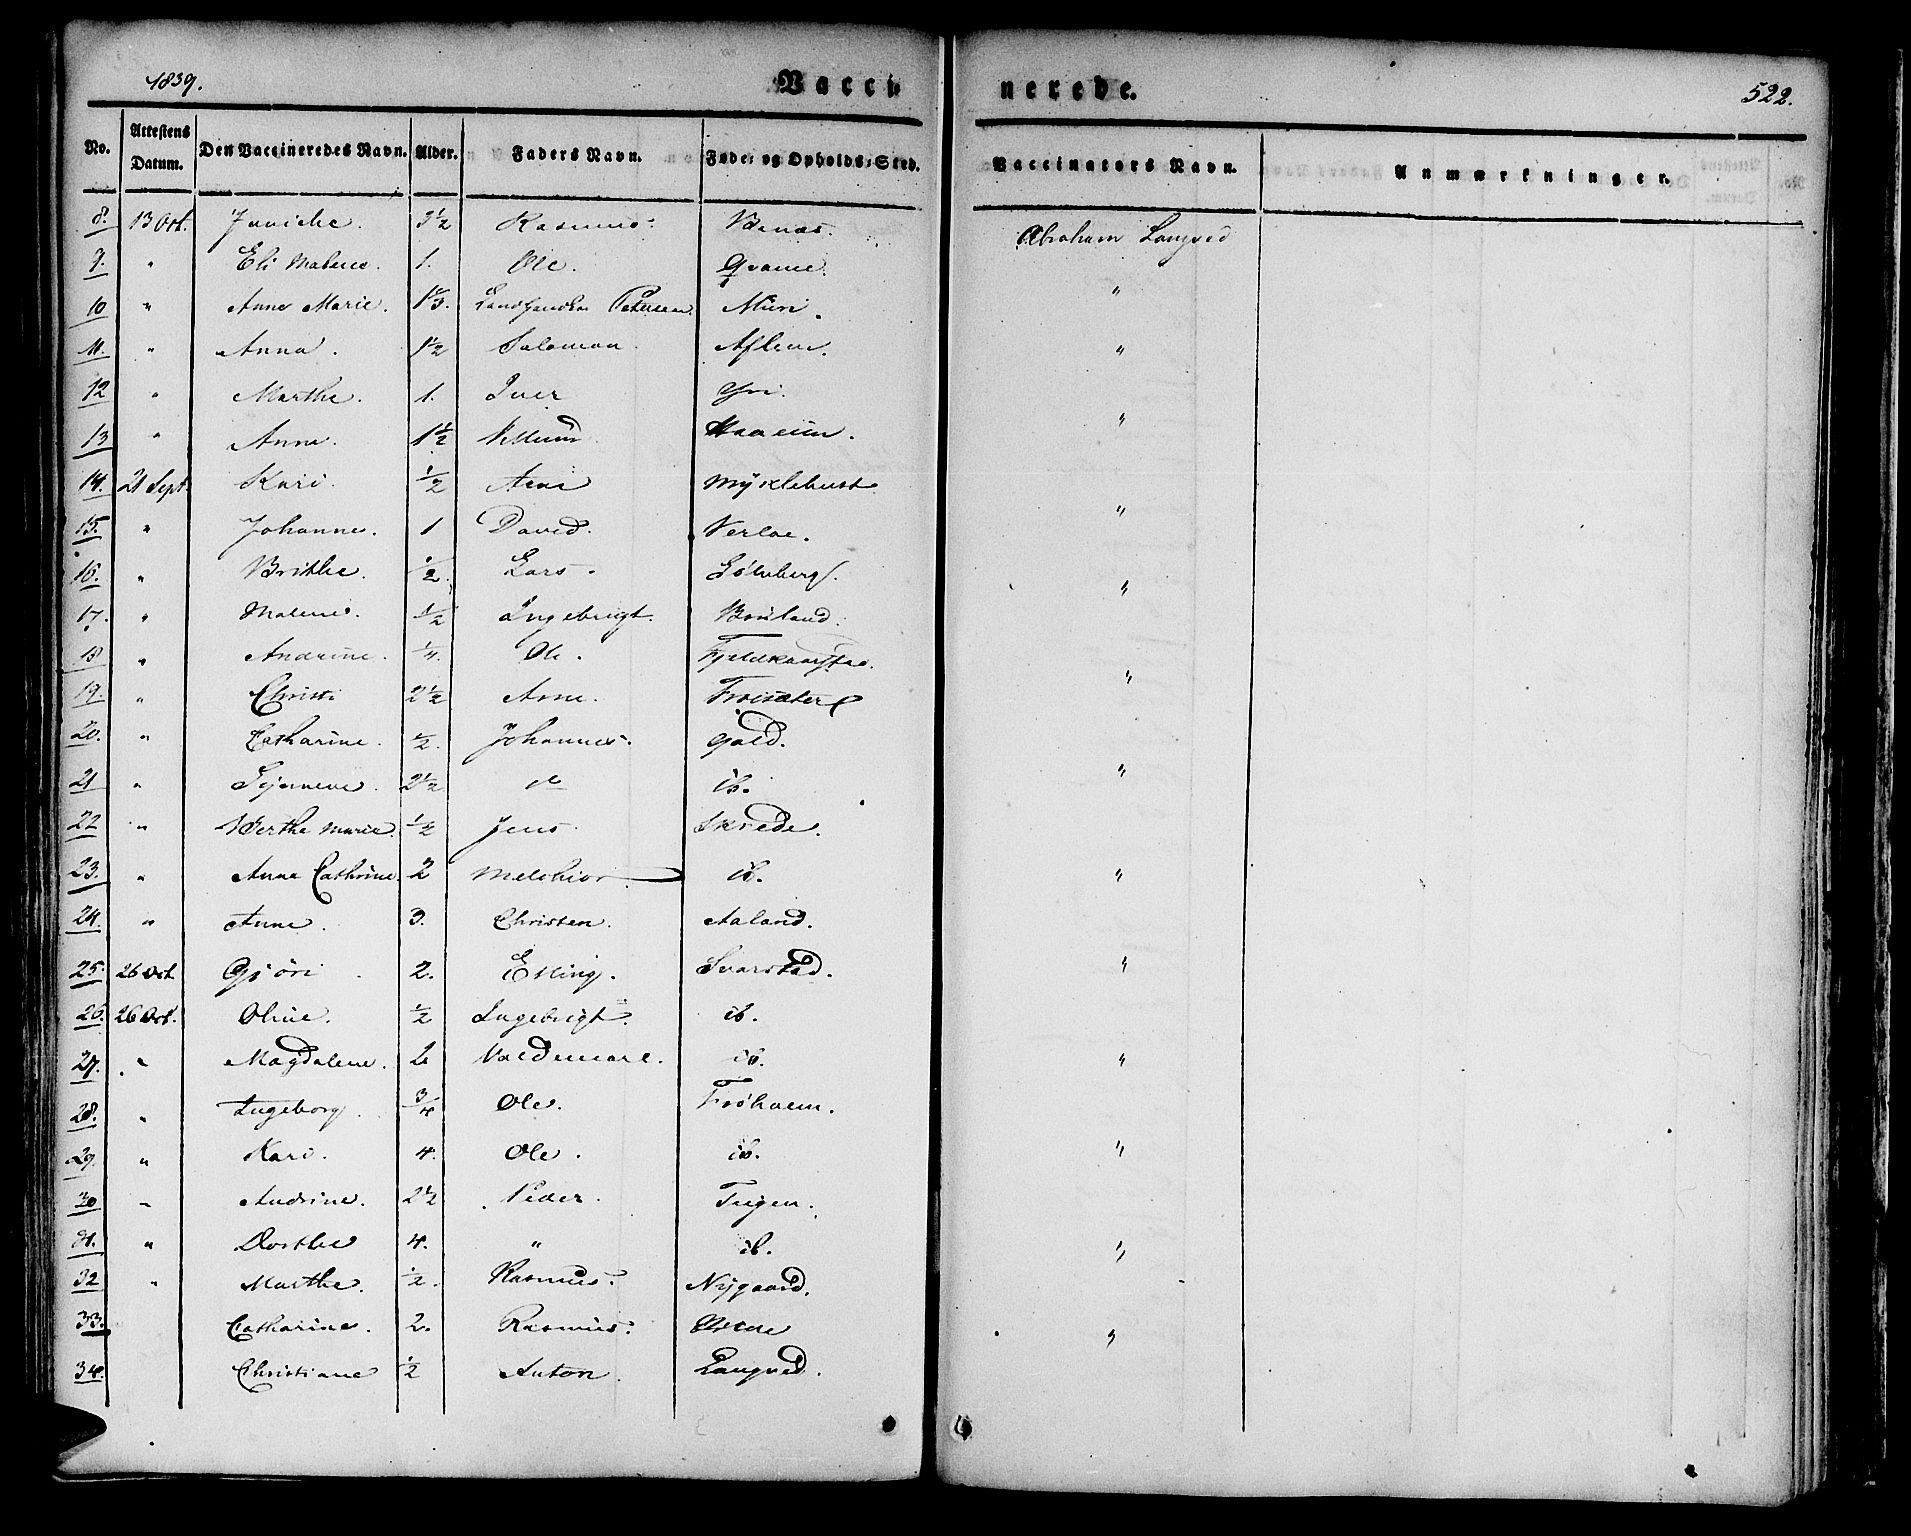 1839. Vacci- nerede. 522.
No. Attestens Datum. Den Vaccineredes Navn. Alder. Faders Navn. Føde- og Opholds-Sted. Vaccinators Navn. Anmærkninger.
8. 13 Oct. Janicke. 3½ Rasmus. Abraham Langved
9. " Eli Malene. 1. Ole. Qvame.
10 " Anne Marie. Petersen. Muri. "
11. " Anna. 1½ Salomon. Aflem. "
12 " Marthe. 1. Iver Yri.
13 " Anne. 1½ "
14. 21 Sept. Kari. ½ Arne Myklebust.
15. " Johanne. 1 David. Verlae. "
16. " Brithe. ½ Lars. Sölvberg. "
17. " Malene. 1½ Ingebrigt. Bruland.
18 " Andrine. ¼. Ole.
19. " Christi 2½ Arne. Froisæter "
20. " Catharine. ½. Johannes. Gald.
21 " 2½ do ib. "
22 " Berthe Marie. ½ Jens. Skrede.
23. " Anne Cathrine. 2 Melchior. ib. "
24. " Anne. 3. Christen. Aaland.
25. 26 Oct. Gjöri. 2. Elling. Svarstad. "
26. 26 Oct. Oline. ½ Ingebrigt. ib.
27. " Magdalene. 2 Valdemar. ib. "
28. " Ingeborg. ¾ Ole. Fröholm.
29. " Kari. 4. Ole. ib. "
30 " Andrine. 2½ Peder. Tugen.
31. " Dorthe 4. " ib. "
32 " Marthe. ½. Rasmus. Nygaard.
33. Catharine. 2. Rasmus. "
34. Christiane ½ Anton. Langved.